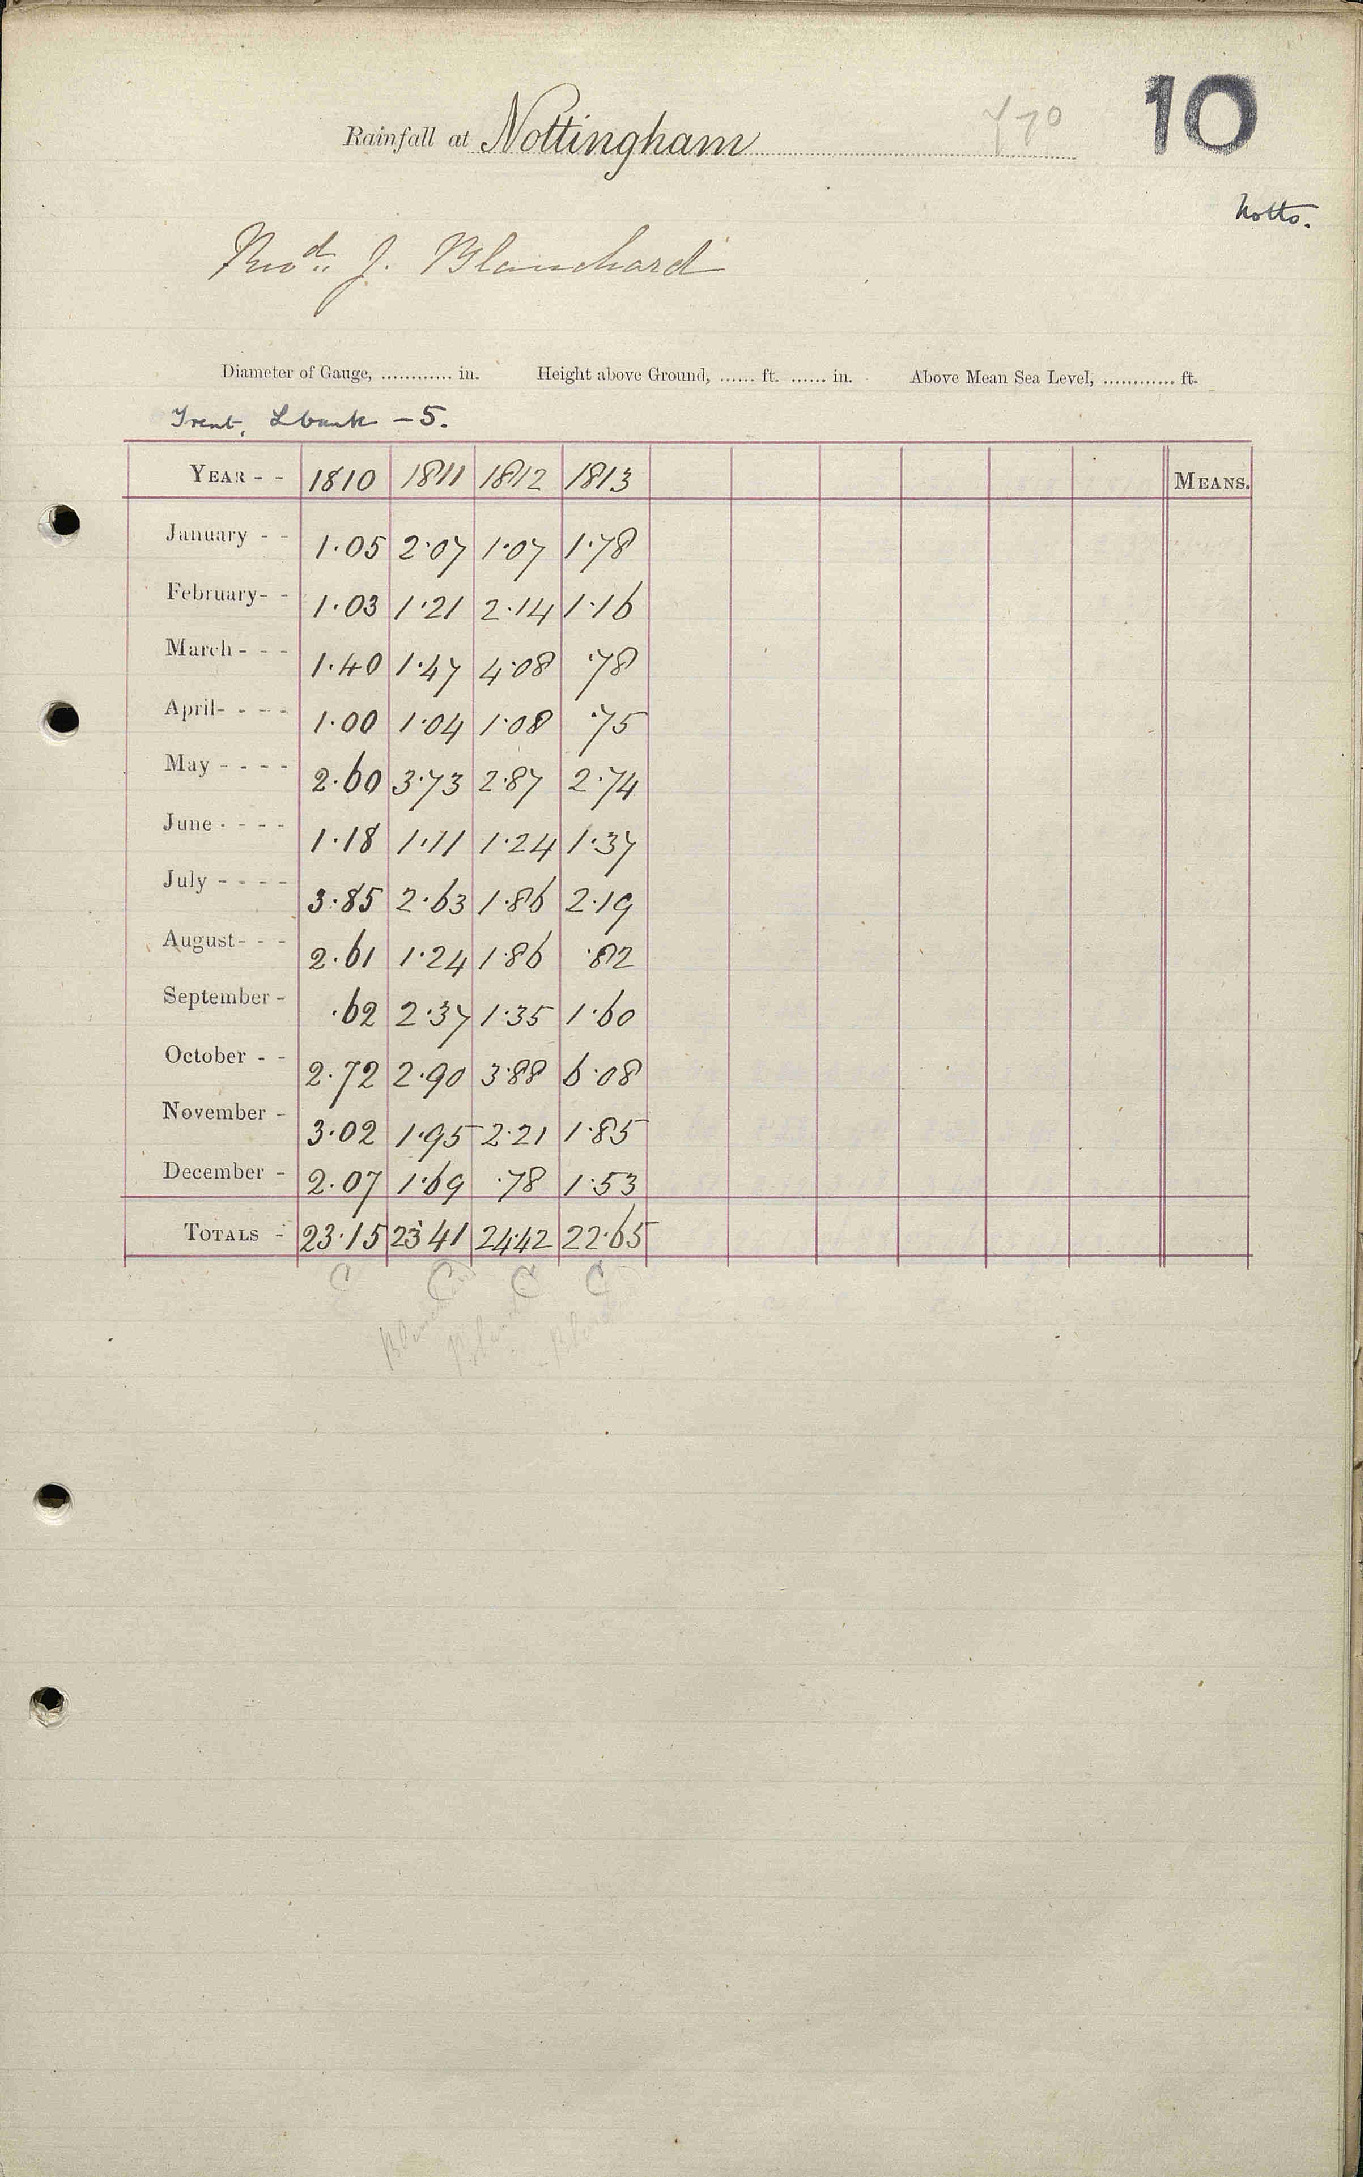 10
Rainfall at Nottingham
Notts.
Revd. J. Blanchard
Diameter of Gauge, ............ in. Height above Ground, ...... ft. ...... in. Above Mean Sea Level, ............ ft.
Trent, L bank - 5.
YEAR - - 1810 1811 1812 1813 MEANS.
January - - 1.05 2.07 1.07 1.78
February - - 1.03 1.21 2.14 1.16
March - - - 1.40 1.47 4.08 .78
April - - - - 1.00 1.04 1.08 .75
May - - - - 2.60 3.73 2.87 2.74
June - - - - 1.18 1.11 1.24 1.37
July - - - - 3.85 2.63 1.86 2.19
August - - - 2.61 1.24 1.86 .82
September - .62 2.37 1.35 1.60
October - - 2.72 2.90 3.88 6.08
November - 3.02 1.95 2.21 1.85
December - 2.07 1.69 .78 1.53
TOTALS - 23.15 23.41 24.42 22.65
C C C C